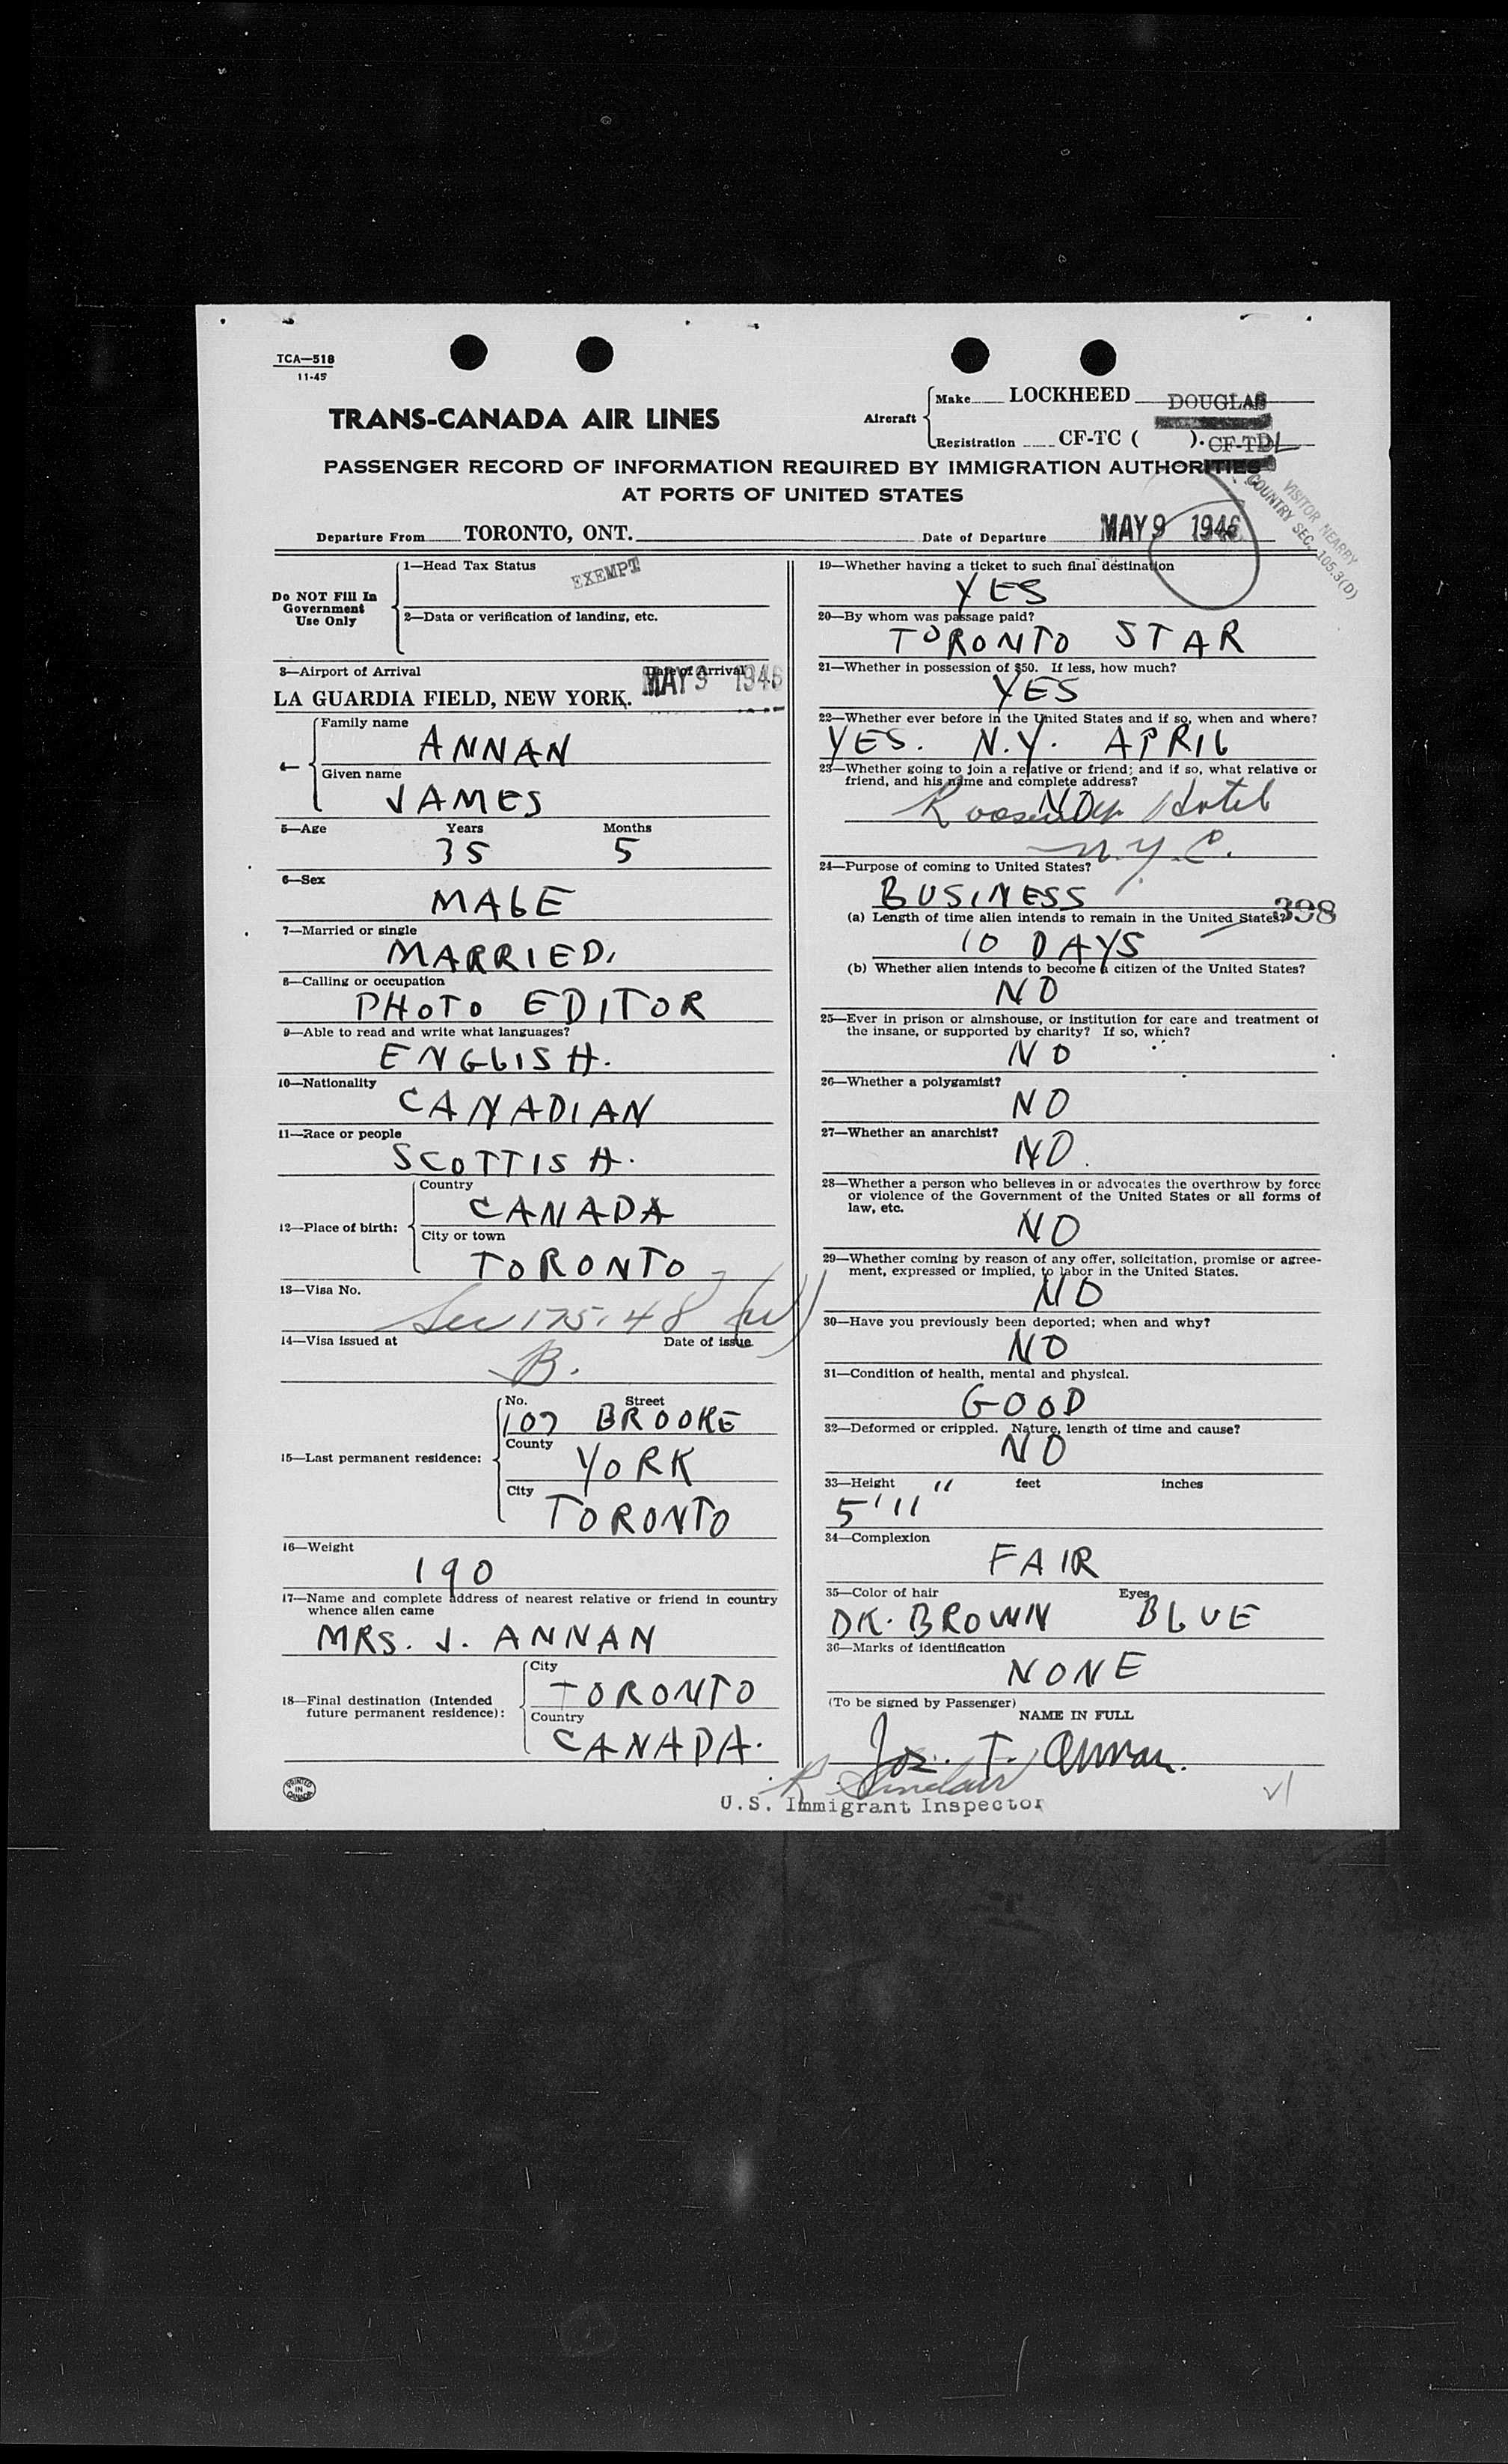 TCA—518
11-45
TRANS-CANADA AIR LINES
Aircraft
Make LOCKHEED DOUGLAS
Registration CF-TC ( ). CF-TDL
PASSENGER RECORD OF INFORMATION REQUIRED BY IMMIGRATION AUTHORITIES
AT PORTS OF UNITED STATES
VISITOR NEARBY
COUNTRY SEC. 105.3(D)
Departure From TORONTO, ONT. Date of Departure MAY 9 1946
Do NOT Fill In
Government
Use Only
1—Head Tax Status EXEMPT
2—Data or verification of landing, etc.
3—Airport of Arrival Date of Arrival
LA GUARDIA FIELD, NEW YORK. MAY 9 1946
Family name
ANNAN
Given name
JAMES
5—Age Years Months
35 5
6—Sex
MALE
7—Married or single
MARRIED.
8—Calling or occupation
PHOTO EDITOR
9—Able to read and write what languages?
ENGLISH.
10—Nationality
CANADIAN
11—Race or people
SCOTTISH.
12—Place of birth:
Country
CANADA
City or town
TORONTO
13—Visa No.
Sec 175.48
14—Visa issued at Date of issue
B.
15—Last permanent residence:
No. Street
107 BROOKE
County
YORK
City
TORONTO
16—Weight
190
17—Name and complete address of nearest relative or friend in country
whence alien came
MRS. J. ANNAN
18—Final destination (Intended
future permanent residence):
City
TORONTO
Country
CANADA.
19—Whether having a ticket to such final destination
YES
20—By whom was passage paid?
TORONTO STAR
21—Whether in possession of $50. If less, how much?
YES
22—Whether ever before in the United States and if so, when and where?
YES. N.Y. APRIL
23—Whether going to join a relative or friend; and if so, what relative or
friend, and his name and complete address?
NO
Hotel
N.Y.C.
24—Purpose of coming to United States?
BUSINESS
398
(a) Length of time alien intends to remain in the United States?
10 DAYS
(b) Whether alien intends to become a citizen of the United States?
NO
25—Ever in prison or almshouse, or institution for care and treatment of
the insane, or supported by charity? If so, which?
NO
26—Whether a polygamist?
NO
27—Whether an anarchist?
NO.
28—Whether a person who believes in or advocates the overthrow by force
or violence of the Government of the United States or all forms of
law, etc.
NO
29—Whether coming by reason of any offer, solicitation, promise or agree-
ment, expressed or implied, to labor in the United States.
NO
30—Have you previously been deported; when and why?
NO
31—Condition of health, mental and physical.
GOOD
32—Deformed or crippled. Nature, length of time and cause?
NO
33—Height feet inches
5'11"
34—Complexion
FAIR
35—Color of hair Eyes
DK. BROWN BLUE
36—Marks of identification
NONE
(To be signed by Passenger)
NAME IN FULL
Jas. T. Annan.
R. Sinclair
U.S. Immigrant Inspector
PRINTED
IN
CANADA